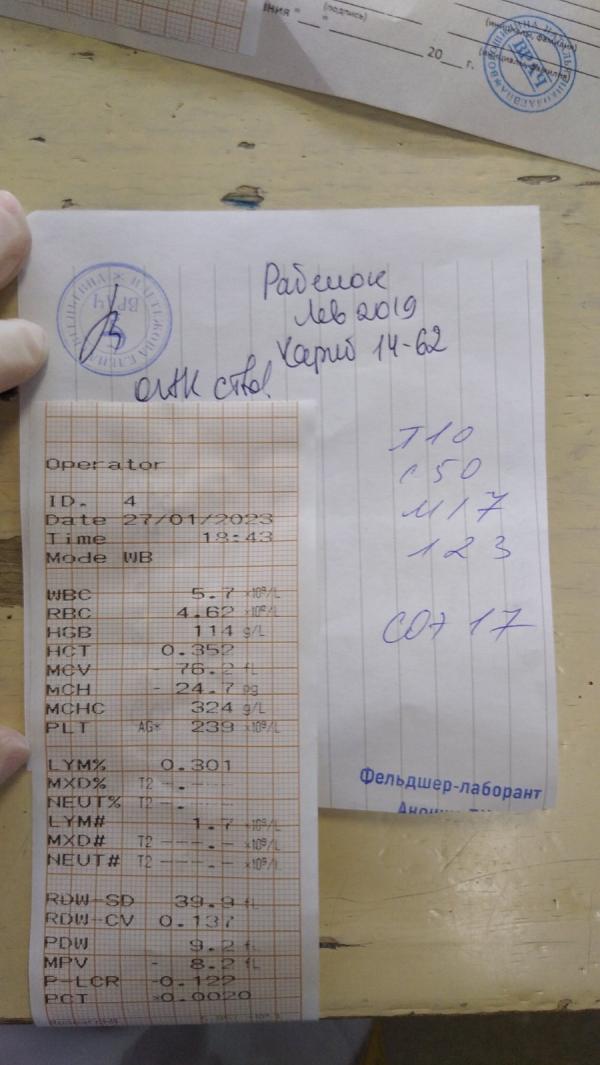 (подпись)
20 г.
ВРАЧ
ВРАЧ
Ребенок
Лев 2019
14-62
Operator
ID. 4
Date 27/01/2023
Time 18:43
Mode WB
WBC 5.7 ×10⁹/L
RBC 4.62
HGB 114 g/L
HCT 0.352
MCV - 76.2 fL
MCH - 24.7 pg
MCHC 324 g/L
PLT AG* 239 ×10⁹/L
LYM% 0.301
MXD% T2 --.----
NEUT% T2 --.----
LYM# 1.7 ×10⁹/L
MXD# T2 ---.- ×10⁹/L
NEUT# T2 ---.- ×10⁹/L
RDW-SD 39.9 fL
RDW-CV 0.137
PDW 9.2 fL
MPV - 8.2 fL
P-LCR -0.122
PCT 0.0020
П 10
С 50
М 17
Л 23
СОЭ 17
Фельдшер-лаборант